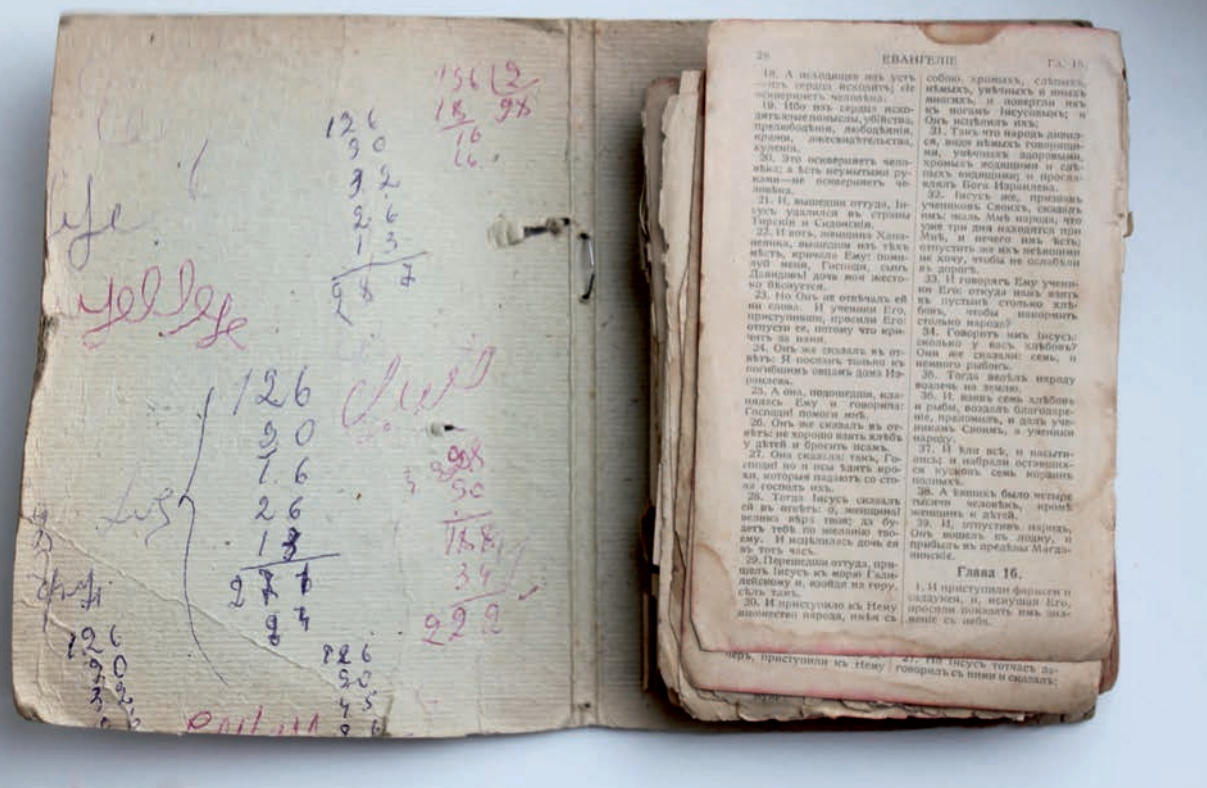 196 2
18 98
16
16
126
90
32
26
13
287
126
90
16
26
98
90
188
34
222
126
90
32
126
90
45
28 ЕВАНГЕЛІЕ Гл. 15.
18. А исходящее изъ устъ
сердца исходитъ; сіе
оскверняетъ человѣка.
19. Ибо изъ сердца исхо-
дятъ злые помыслы, убійства,
прелюбодѣянія, любодѣянія,
кражи, лжесвидѣтельства,
хуленія.
20. Это оскверняетъ чело-
вѣка; а ѣсть неумытыми ру-
ками—не оскверняетъ че-
ловѣка.
21. И, вышедши оттуда, Іи-
сусъ удалился въ страны
Тирскія и Сидонскія.
22. И вотъ, женщина Хана-
неянка, вышедши изъ тѣхъ
мѣстъ, кричала Ему: поми-
луй меня, Господи, сынъ
Давидовъ! дочь моя жесто-
ко бѣснуется.
23. Но Онъ не отвѣчалъ ей
ни слова. И ученики Его,
приступивши, просили Его:
отпусти ее, потому что кри-
читъ за нами.
24. Онъ же сказалъ въ от-
вѣтъ: Я посланъ только къ
погибшимъ овцамъ дома Из-
раилева.
25. А она, подошедши, кла-
нялась Ему и говорила:
Господи! помоги мнѣ.
26. Онъ же сказалъ въ от-
вѣтъ: не хорошо взять хлѣбъ
у дѣтей и бросить псамъ.
27. Она сказала: такъ, Го-
споди! но и псы ѣдятъ кро-
хи, которыя падаютъ со сто-
ла господъ ихъ.
28. Тогда Іисусъ сказалъ
ей въ отвѣтъ: о, женщина!
велика вѣра твоя; да бу-
детъ тебѣ по желанію тво-
ему. И исцѣлилась дочь ея
въ тотъ часъ.
29. Перешедши оттуда, при-
шелъ Іисусъ къ морю Гали-
лейскому и, взойдя на гору,
сѣлъ тамъ.
30. И приступило къ Нему
множество народа, имѣя съ
собою хромыхъ, слѣпыхъ,
нѣмыхъ, увѣчныхъ и иныхъ
многихъ, и повергли ихъ
къ ногамъ Іисусовымъ; и
Онъ исцѣлилъ ихъ;
31. Такъ что народъ дивил-
ся, видя нѣмыхъ говорящи-
ми, увѣчныхъ здоровыми,
хромыхъ ходящими и слѣ-
пыхъ видящими; и просла-
влялъ Бога Израилева.
32. Іисусъ же, призвавъ
учениковъ Своихъ, сказалъ
имъ: жаль Мнѣ народа, что
уже три дня находятся при
Мнѣ, и нечего имъ ѣсть;
отпустить же ихъ неѣвшими
не хочу, чтобы не ослабѣли
въ дорогѣ.
33. И говорятъ Ему учени-
ки Его: откуда намъ взять
въ пустынѣ столько хлѣ-
бовъ, чтобы накормить
столько народа?
34. Говоритъ имъ Іисусъ:
сколько у васъ хлѣбовъ?
Они же сказали: семь, и
немного рыбокъ.
35. Тогда велѣлъ народу
возлечь на землю.
36. И, взявъ семь хлѣбовъ
и рыбы, воздалъ благодаре-
ніе, преломилъ, и далъ уче-
никамъ Своимъ, а ученики
народу.
37. И ѣли всѣ, и насыти-
лись; и набрали оставших-
ся кусковъ семь корзинъ
полныхъ.
38. А ѣвшихъ было четыре
тысячи человѣкъ, кромѣ
женщинъ и дѣтей.
39. И, отпустивъ народъ,
Онъ вошелъ въ лодку, и
прибылъ въ предѣлы Магда-
линскіе.
Глава 16.
1. И приступили фарисеи и
саддукеи, и, искушая Его,
просили показать имъ зна-
меніе съ неба.
приступили къ Нему
27. Но Іисусъ тотчасъ за-
говорилъ съ ними и сказалъ: